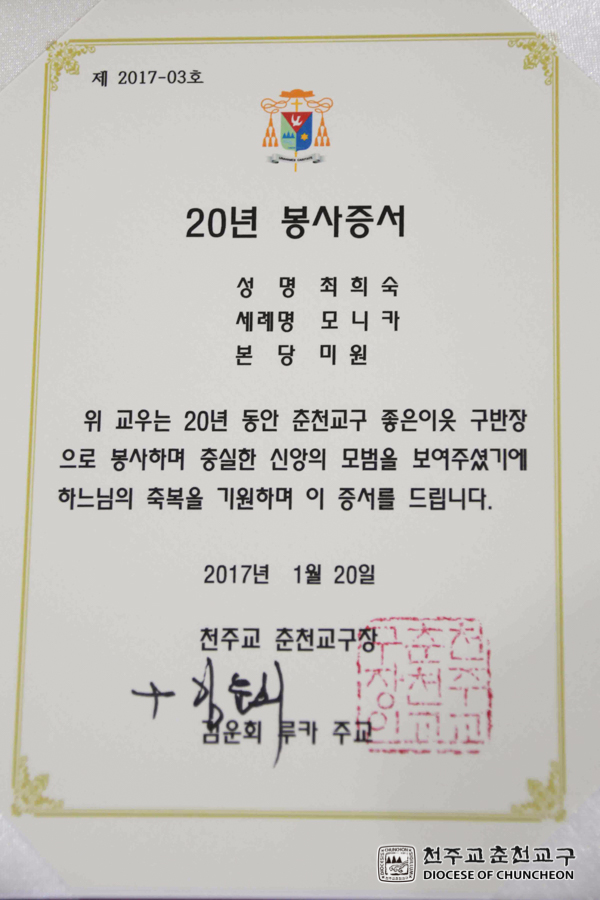 제 2017-03호
20년 봉사증서
성 명 최 희 숙
세례명 모 니 카
본 당 미 원
위 교우는 20년 동안 춘천교구 좋은이웃 구반장
으로 봉사하며 충실한 신앙의 모범을 보여주셨기에
하느님의 축복을 기원하며 이 증서를 드립니다.
2017년 1월 20일
천주교 춘천교구장
김운회 루카 주교
천주교
춘천교
구장인
천주교춘천교구
DIOCESE OF CHUNCHEON